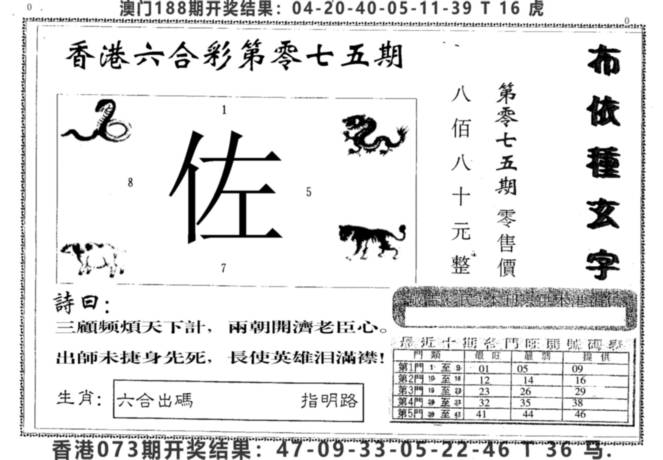 澳门188期开奖结果：04-20-40-05-11-39 T 16 虎
0
0
香港六合彩第零七五期
1
8
佐
5
7
布依種玄字
第零七五期零售價
八佰八十元整
詩曰：
三顧频煩天下計，兩朝開濟老臣心。
出師未捷身先死，長使英雄泪滿襟!
生肖：
六合出碼 指明路
最近十期各門旺開號碼
門類 最旺 提供
第1門 1 至 9 01 05 09
第2門 10 至 18 12 14 16
第3門 至 23 26 29
第4門 至 32 35 38
第5門 至 41 44 46
香港073期开奖结果：47-09-33-05-22-46 T 36 马.